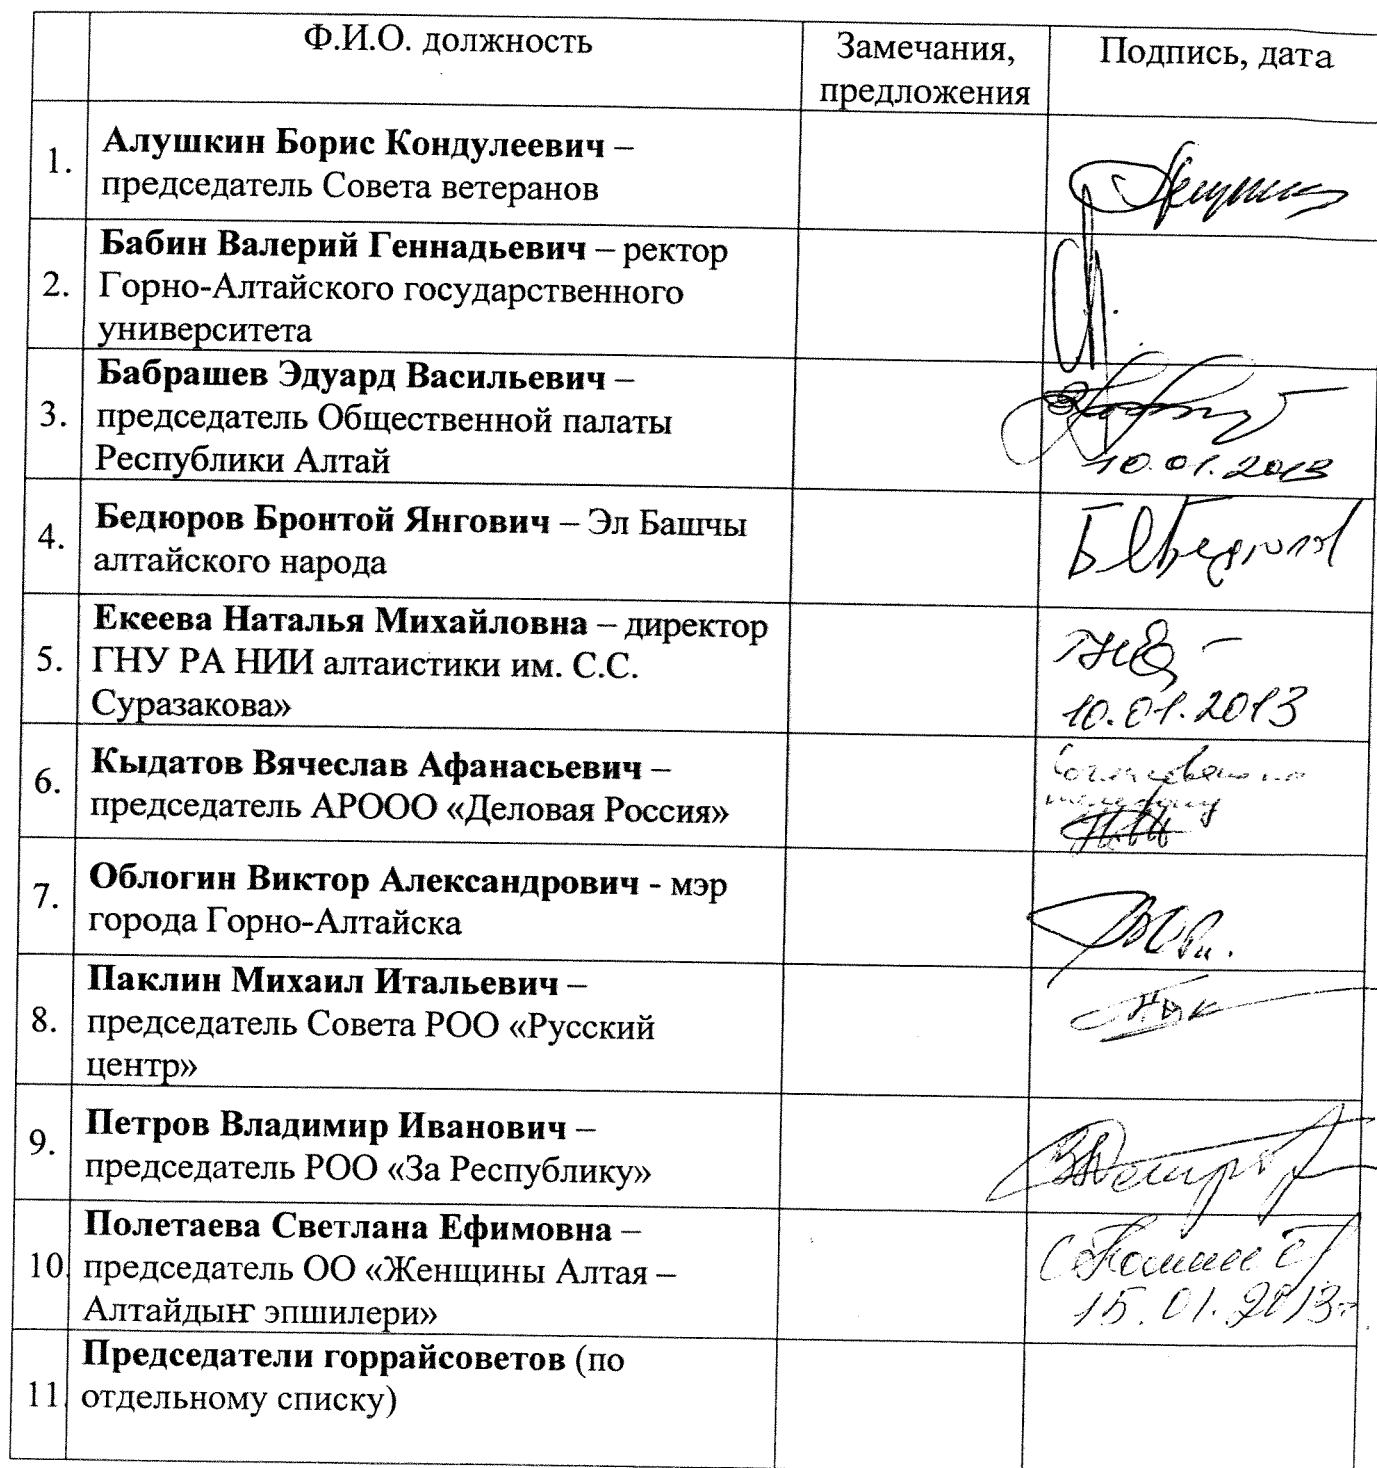 Ф.И.О. должность
Замечания,
предложения
Подпись, дата
1.
Алушкин Борис Кондулеевич –
председатель Совета ветеранов
2.
Бабин Валерий Геннадьевич – ректор
Горно-Алтайского государственного
университета
3.
Бабрашев Эдуард Васильевич –
председатель Общественной палаты
Республики Алтай
10.01.2013
4.
Бедюров Бронтой Янгович – Эл Башчы
алтайского народа
5.
Екеева Наталья Михайловна – директор
ГНУ РА НИИ алтаистики им. С.С.
Суразакова»
10.01.2013
6.
Кыдатов Вячеслав Афанасьевич –
председатель АРООО «Деловая Россия»
7.
Облогин Виктор Александрович - мэр
города Горно-Алтайска
8.
Паклин Михаил Итальевич –
председатель Совета РОО «Русский
центр»
9.
Петров Владимир Иванович –
председатель РОО «За Республику»
10
Полетаева Светлана Ефимовна –
председатель ОО «Женщины Алтая –
Алтайдыҥ эпшилери»
15.01.2013г.
11
Председатели горрайсоветов (по
отдельному списку)